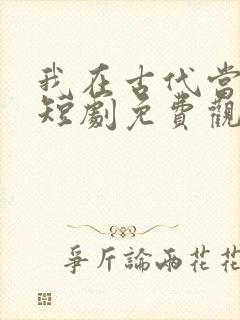 我在古代當
短劇免費觀
爭斤論兩花花